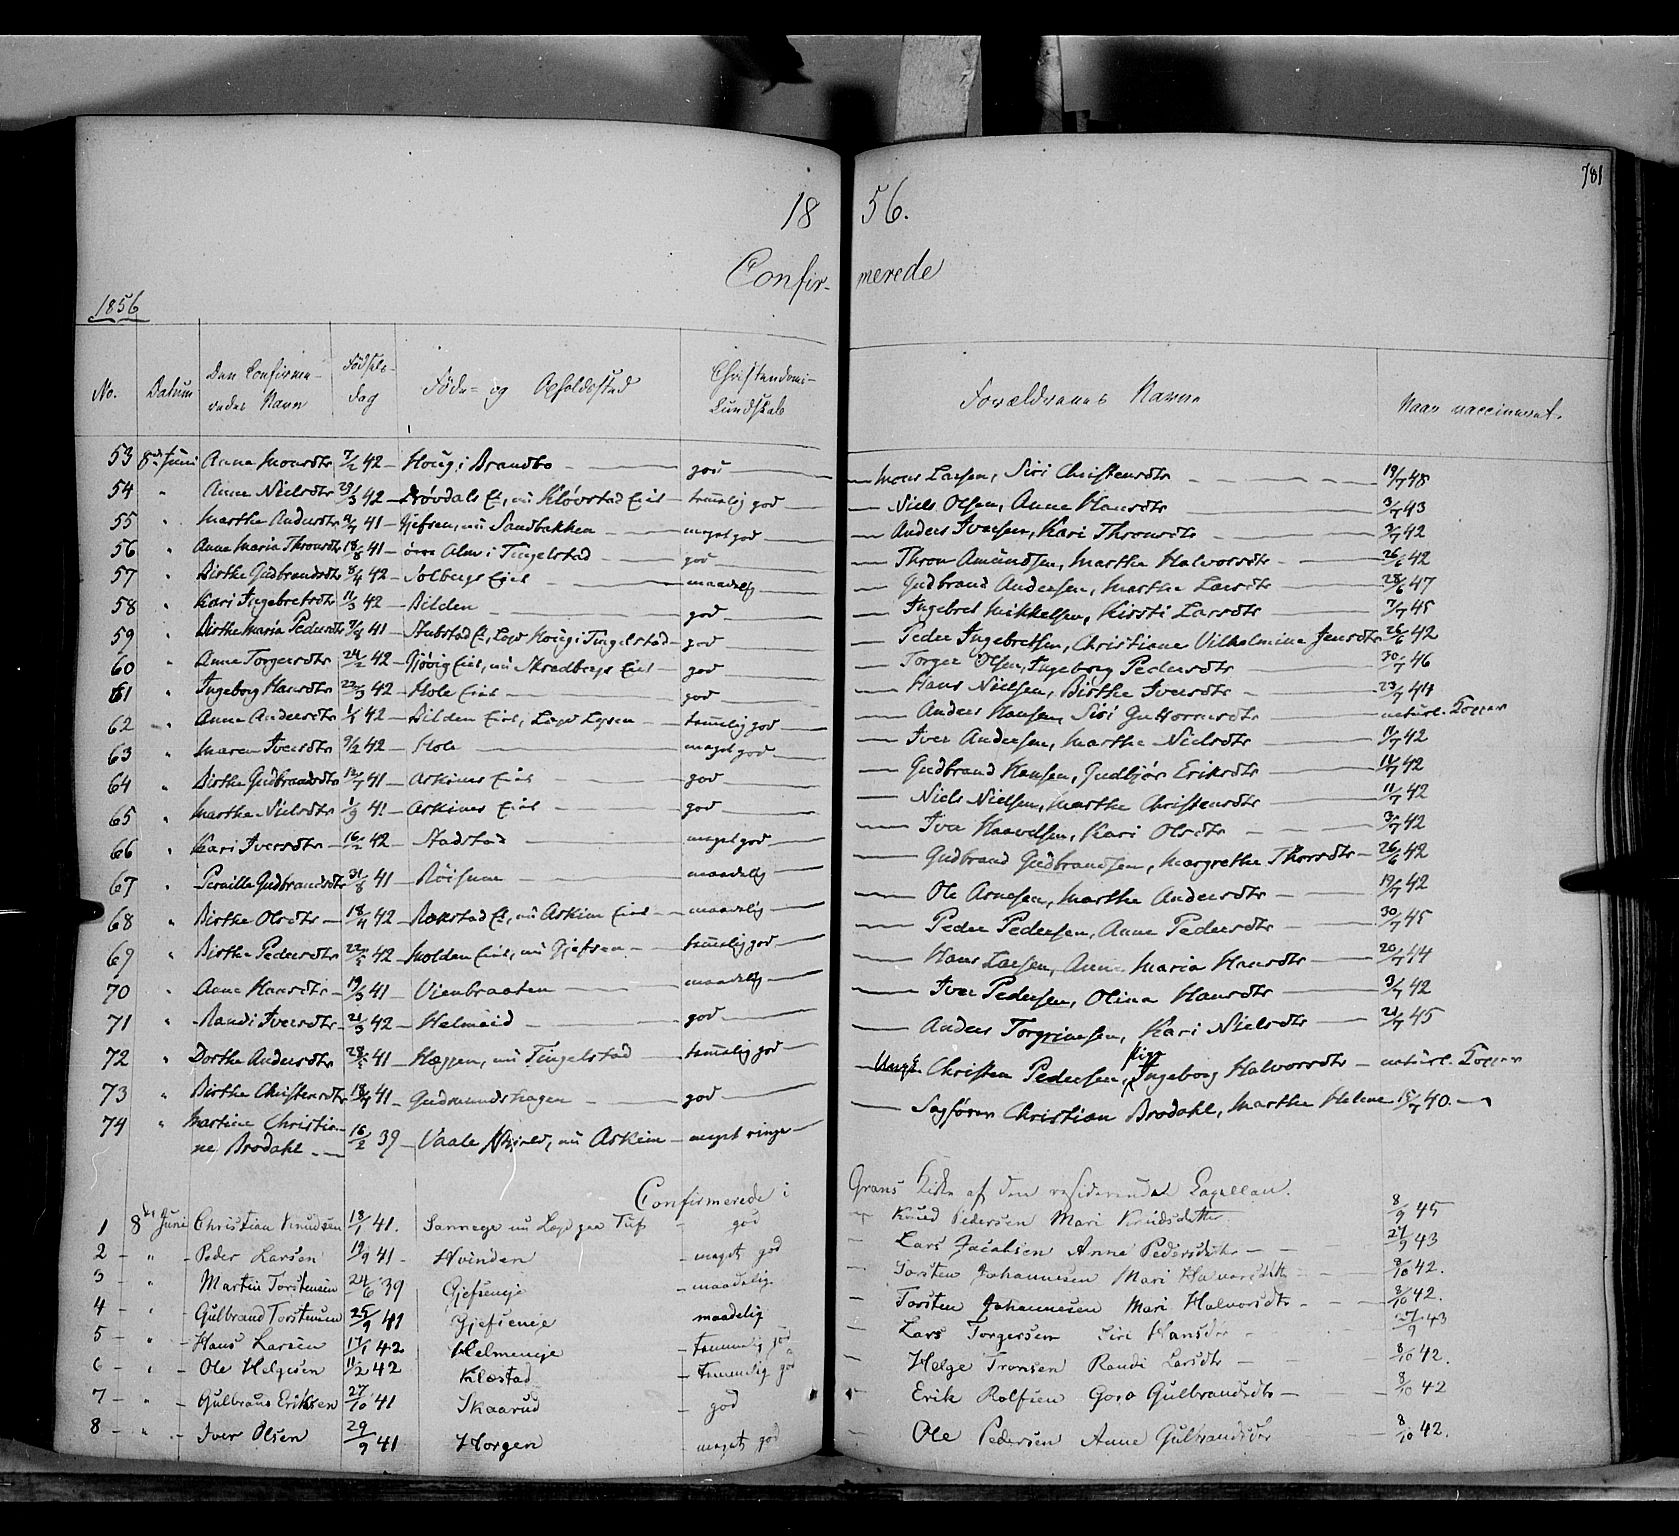 781
18 56.
Confir- merede
1856
No. Datum Den Confirme- redes Navn Fødsels- dag Føde- og Opholdssted Christendoms- Kundskab Forældrenes Navne Naar vaccineret.
53 8de Juni Anna Monsdtr 7/2 42 Houg i Brandbo god Mons Larsen, Siri Christensdtr 19/7 48
54 " Anne Nielsdtr 29/3 42 Drøvdals Ei., nu Kløvstad Eiet temmelig god Niels Olsen, Anne Hansdtr 3/7 43
55 " Marthe Andersdtr 9/7 41 Gjefsen, nu Sandbakken meget god Anders Iversen, Kari Thronsdtr 3/7 42
56 " Anne Maria Thronsdtr 18/8 41 øvre Alm i Tingelstad god Thron Amundsen, Marthe Halvorsdtr 26/6 42
57 " Birthe Gudbrandsdtr 8/4 42 Solbergs Eiet maadelig Gudbrand Andersen, Marthe Larsdtr 28/6 47
58 " Kari Ingebretsdtr 11/3 42 Bilden god Ingebret Mikkelsen, Kirsti Larsdtr 7/7 45
59 " Birthe Maria Pedersdtr 7/8 41 Stubstad Ei., Lægd Houg i Tingelstad god Peder Ingebrethsen, Christiane Vilhelmine Jensdtr 26/6 42
60 " Anne Torgersdtr 24/2 42 Gjøvig Eiet, nu Skredbergs Eiet god Torger Olsen, Ingeborg Pedersdtr 30/7 46
61 " Ingeborg Hansdtr 22/3 42 Hole Eiet god Hans Nielsen, Birthe Iversdtr 23/7 44
62 " Anne Andersdtr 1/1 42 Bilden Eiet, Lægd Lysen temmelig god Anders Hansen, Siri Guttormsdtr naturl. Kopper
63 " Maren Iversdtr 9/2 42 Hole meget god Iver Andersen, Marthe Nielsdtr 11/7 42
64 " Birthe Gudbrandsdtr 12/7 41 Askims Eiet god Gudbrand Hansen, Gudbjør Eriksdtr 11/7 42
65 " Marthe Nielsdtr 1/9 41 Askims Eiet god Niels Nielsen, Marthe Christensdtr 11/7 42
66 " Kari Iversdtr 16/2 42 Stadstad meget god Iver Haavelsen, Kari Olsdtr 3/7 42
67 " Pernille Gudbrandsdtr 31/8 41 Röisum maadelig Gudbrand Gudbrandsen, Margrethe Thorsdtr 26/6 42
68 " Birthe Olsdtr 18/4 42 Rækstad Ei., nu Askim Eiet maadelig Ole Arnesen, Marthe Andersdtr 19/7 42
69 " Birthe Pedersdtr 42 Molden Eiet, nu Gjefsen temmelig god Peder Pedersen, Anne Pedersdtr 30/7 45
70 " Anne Hansdtr 19/3 41 Vienbraaten maadelig Hans Larsen, Anne Maria Hansdtr 20/7 44
71 " Randi Iversdtr 21/3 42 Helmeid god Iver Pedersen, Olina Hansdtr 3/7 42
72 " Dorthe Andersdtr 41 Heggen, nu Tingelstad temmelig god Anders Torgrimsen, Kari Nielsdtr 21/7 45
73 " Birthe Christensdtr 41 Gudmundshagen god Ungk. Christen Pedersen, Pige Ingeborg Halvorsdtr naturl. Kopper
74 " Martine Christia- ne Brodahl 16/2 39 Vaale, nu Askim meget ringe Sagfører Christian Brodahl, Marthe Helene 15/7 40.
Confirmerede i Grans Kirke af den residerende Capellan.
1 8de Juni Christian Knudsen 18/1 41. Sannege nu Lægd paa Tuf god Knud Pedersen Mari Knudsdatter 8/9 45
2 " Peder Larsen 19/9 41 Hvinden meget god Lars Jacobsen Anne Pedersdtr 27/9 43
3 " Martin Torstensen 24/6 39 Gjefseneje maadelig Torsten Johannesen Mari Halvorsdtr 8/10 42.
4 " Gulbrand Torstensen 25/9 41 Gjefseneje maadelig Torsten Johannesen Mari Halvorsdtr 8/10 42.
5 " Hans Larsen 17/1 42 Helmeneje temmelig god Lars Torgersen Siri Hansdtr 27/9 43
6 " Ole Helgesen 11/2 42 Klæstad temmelig god Helge Tronsen Randi Larsdtr 8/10 42.
7 " Gulbrand Eriksen 27/10 41 Skaarud god Erik Rolfsen Goro Gulbrandsdtr 8/10 42
8 " Iver Olsen 29/9 41 Horgen meget god Ole Pedersen Anne Gulbrandsdtr 8/10 42.